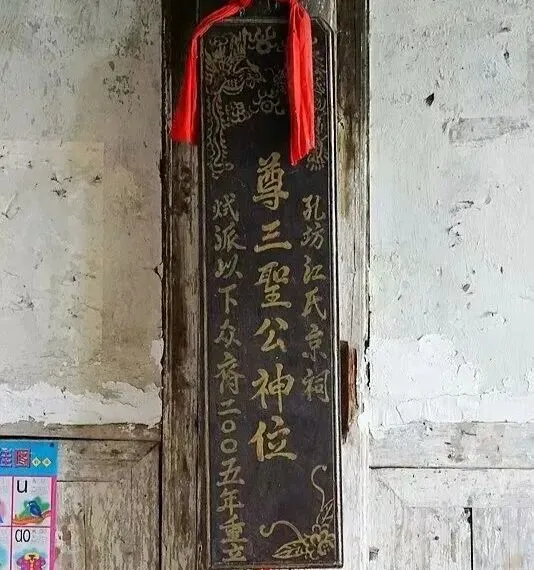 孔坊江氏京祠
尊三聖公神位
斌派以下众裔二〇〇五年重立
u
ao